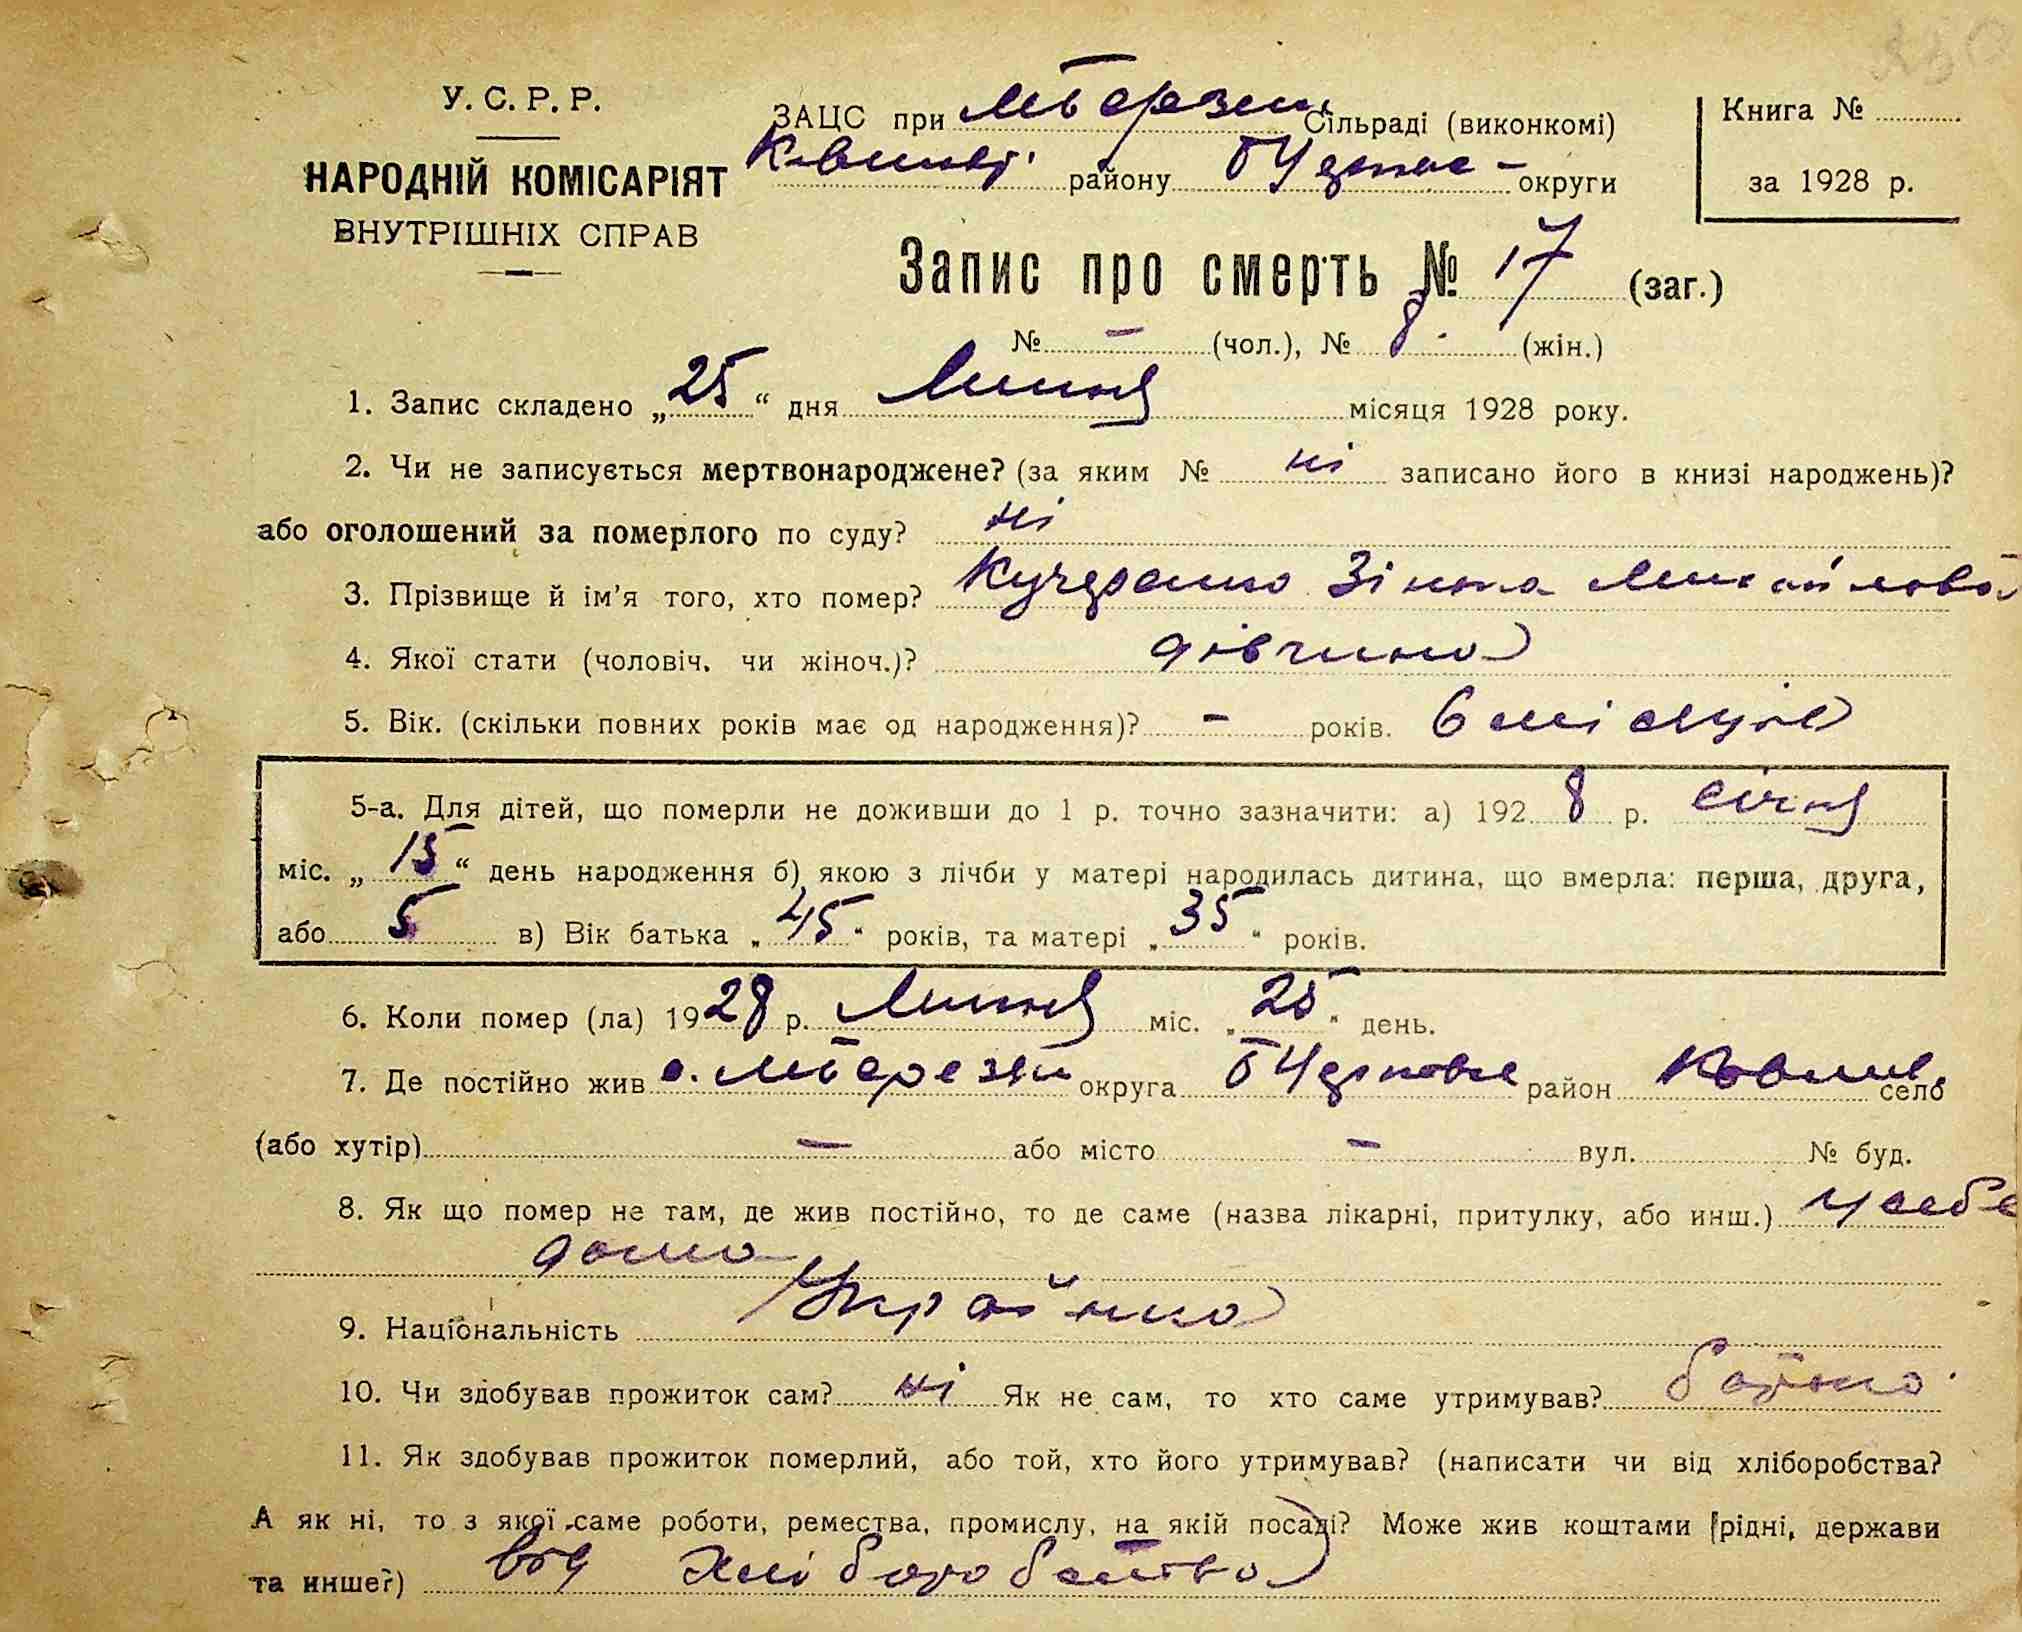 У. С. Р. Р.
НАРОДНІЙ КОМІСАРІЯТ
ВНУТРІШНІХ СПРАВ
ЗАЦС при М Березн Сільраді (виконкомі)
району округи
Книга №
за 1928 р.
Запис про смерть № 17 (заг.)
№ — (чол.), № 8. (жін.)
1. Запис складено „25“ дня Липня місяця 1928 року.
2. Чи не записується мертвонароджене? (за яким № ні записано його в книзі народжень)?
або оголошений за померлого по суду? ні
3. Прізвище й ім'я того, хто помер? Зінька Михайлова
4. Якої стати (чоловіч. чи жіноч.)? дівчина
5. Вік. (скільки повних років має од народження)? – років. 6 місяців
5-а. Для дітей, що померли не доживши до 1 р. точно зазначити: а) 1928 р. січня
міс. „15“ день народження б) якою з лічби у матері народилась дитина, що вмерла: перша, друга,
або 5 в) Вік батька „45“ років, та матері „35“ років.
6. Коли помер (ла) 1928 р. Липня міс. „25“ день.
7. Де постійно жив с. М Березн округа район село
(або хутір) — або місто — вул. № буд.
8. Як що помер не там, де жив постійно, то де саме (назва лікарні, притулку, або инш.) у себе
дома
9. Національність Українка
10. Чи здобував прожиток сам? ні Як не сам, то хто саме утримував? батько
11. Як здобував прожиток померлий, або той, хто його утримував? (написати чи від хліборобства?
А як ні, то з якої саме роботи, ремества, промислу, на якій посаді? Може жив коштами рідні, держави
та инше?) від хліборобства